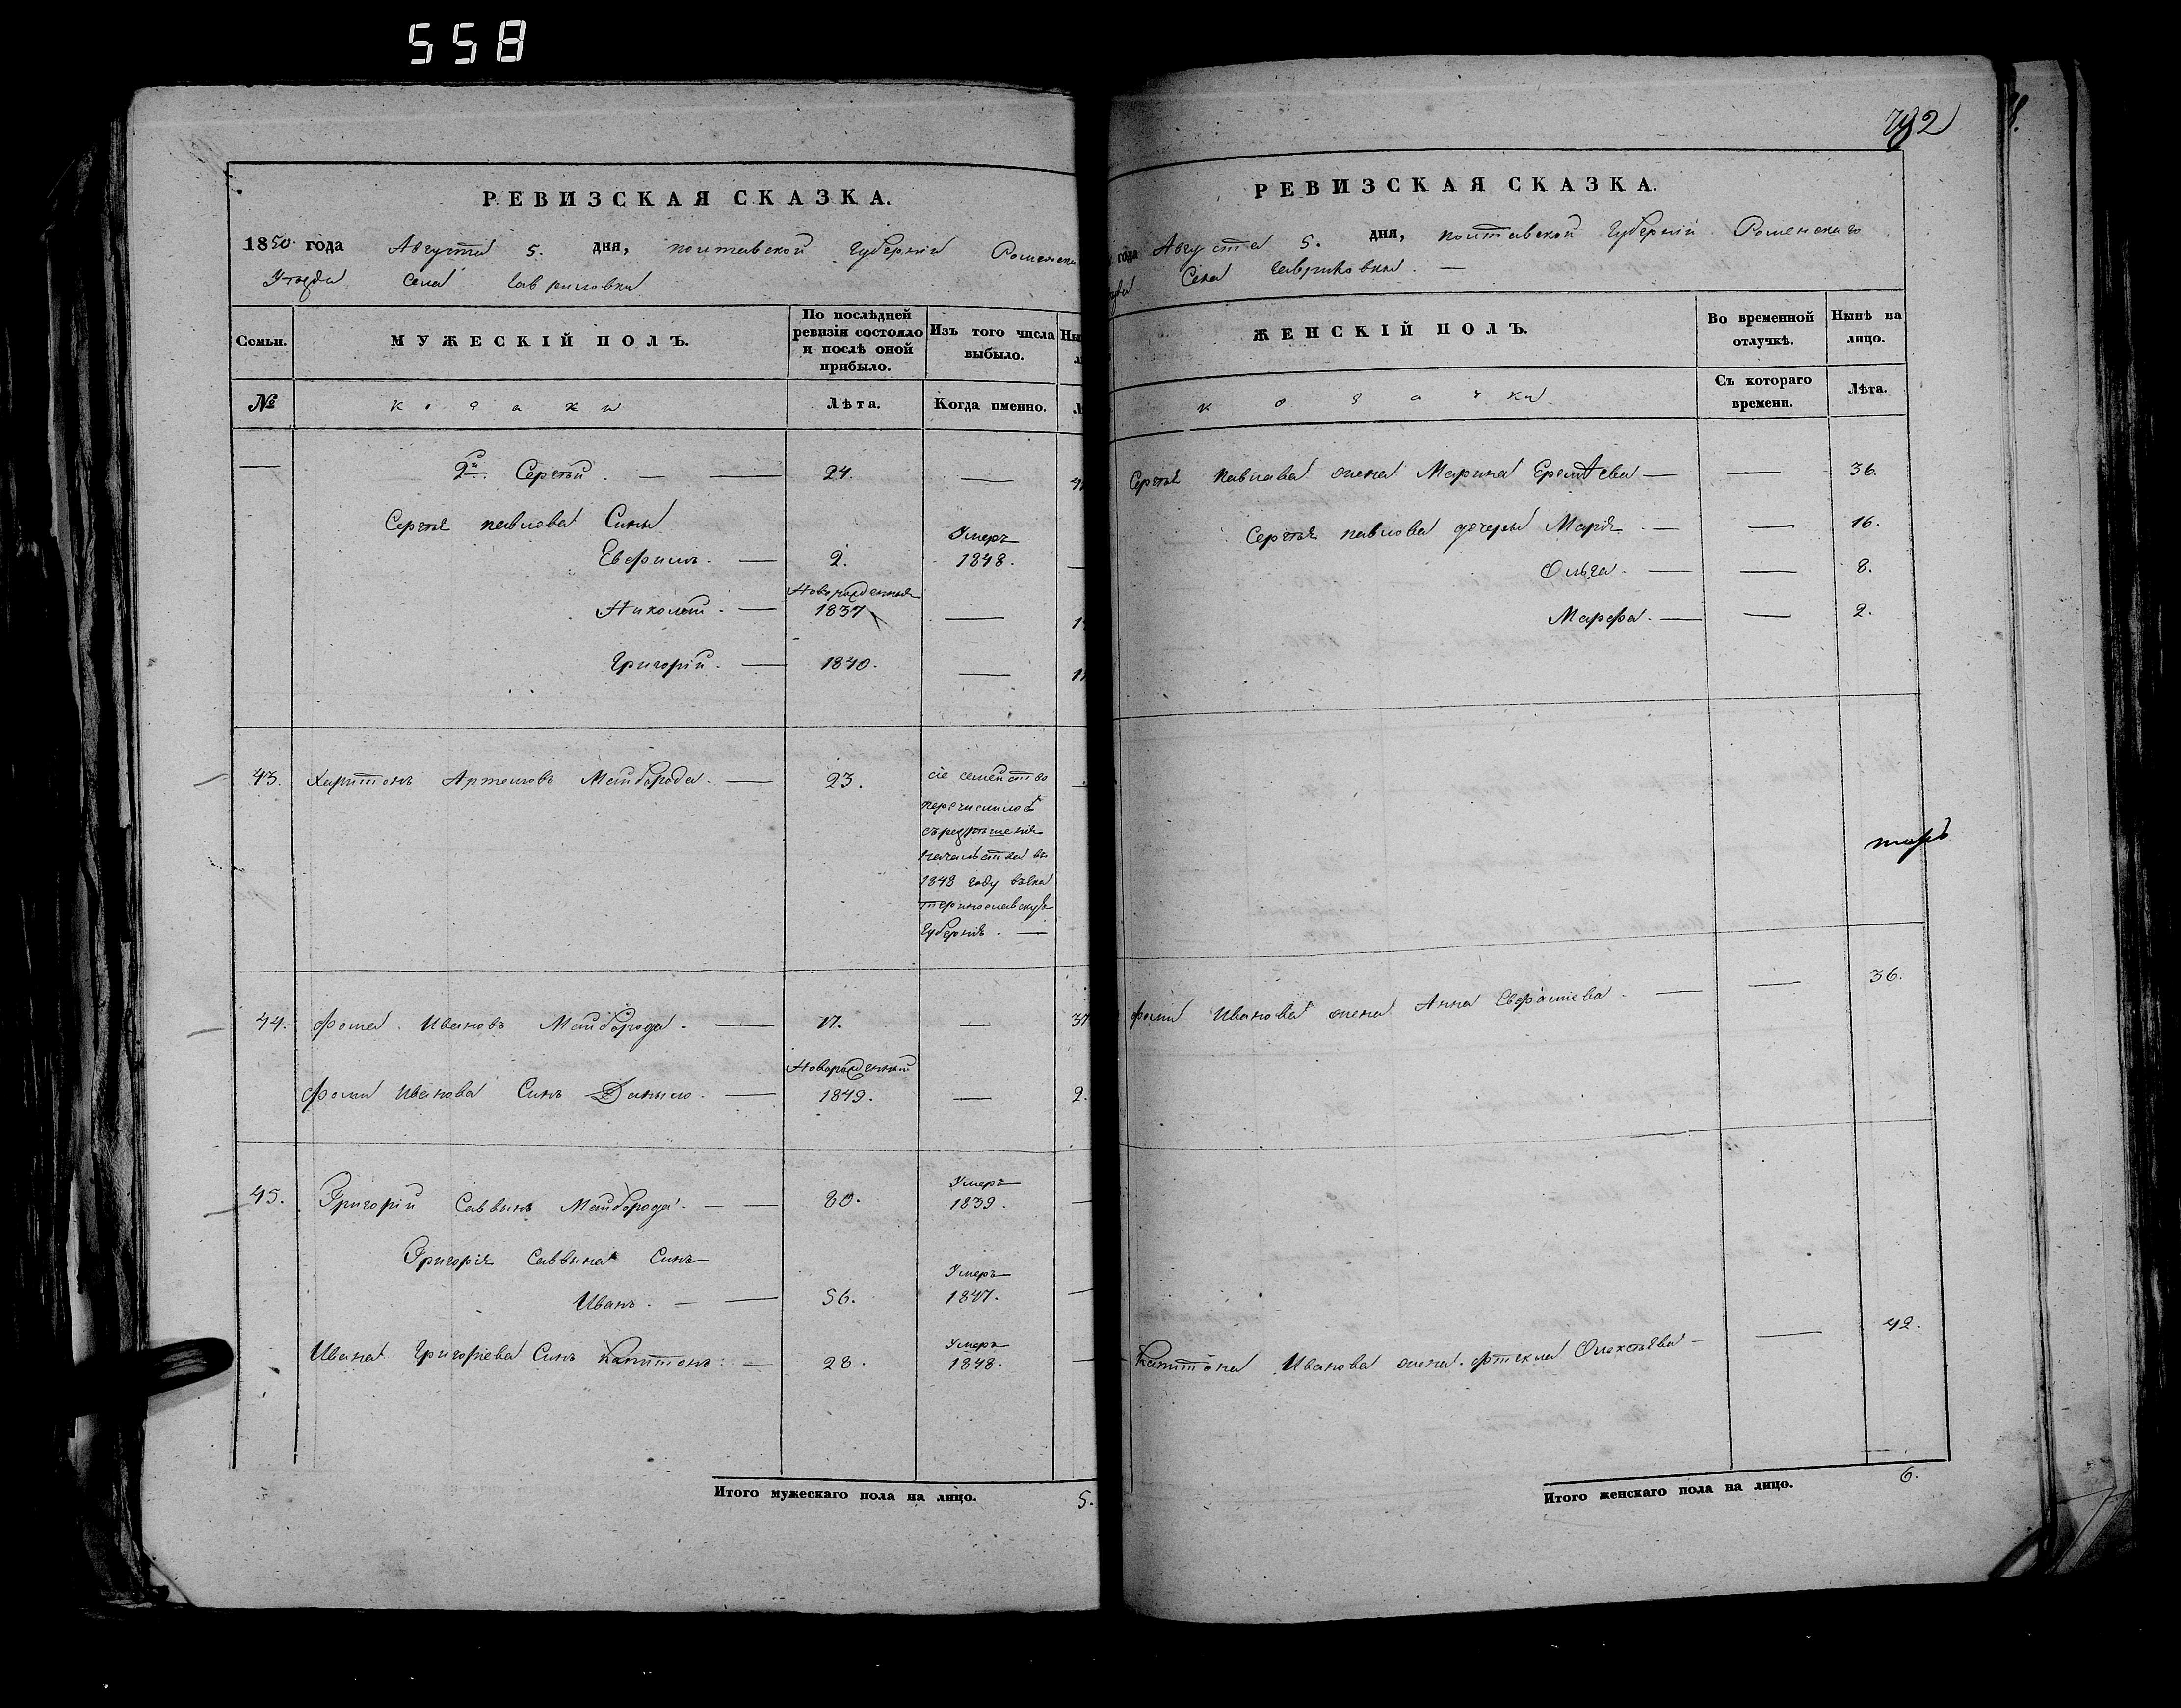 558
782
РЕВИЗСКАЯ СКАЗКА.
1850 года Августа 5. дня, полтавской Губерніи Роменска
Уѣзда Села Гавриловки
Семьи.
МУЖЕСКІЙ ПОЛЪ.
По послѣдней ревизіи состояло и послѣ оной прибыло.
Изъ того числа выбыло.
№
козаки
Лѣта.
Когда именно.
2й Сергѣй. 24.
Сергѣя павлова Сины
Евфримъ. 2. Умеръ 1848.
Николай. Новорожденныя 1837
Григорій. 1840.
43. Харитонъ Артемовъ Майборода. 23.
сіе семейство
перечислилось
съ разрѣшенія
начальства въ
1843 году въ Ека
теринославскую
Губернію.
44. Фома Ивановъ Майборода. 17. 37
Фомы Иванова Синъ Данило. Новорожденный 1849. 2.
45. Григорій Саввинъ Майборода. 80. Умеръ 1839.
Григорія Саввина Синъ
Иванъ. 56. Умеръ 1847.
Ивана Григорíева Синъ Капитонъ. 28. Умеръ 1848.
Итого мужескаго пола на лицо. 5.
РЕВИЗСКАЯ СКАЗКА.
года Августа 5. дня, полтавской Губерніи Роменскаго
Села Гавриловки.
ЖЕНСКІЙ ПОЛЪ.
Во временной отлучкѣ.
Нынѣ на лицо.
козачки
Съ котораго времени.
Лѣта.
Сергѣя павлова жена Марина Еремѣева 36.
Сергѣя павлова дочеры Марія 16.
Ольга. 8.
Марфа. 2.
Фомы Иванова жена Анна 36.
Капитона Иванова жена Фтекла Олексѣева 42.
Итого женскаго пола на лицо. 6.